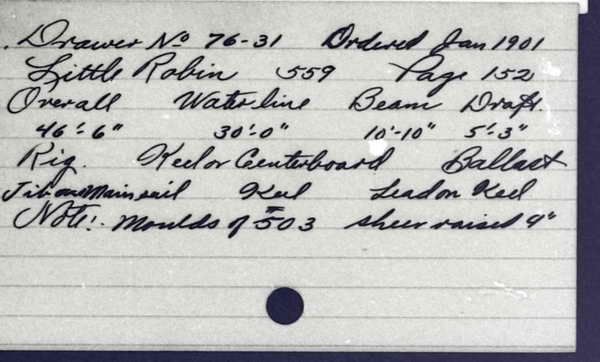 Drawer No 76-31 Ordered Jan 1901
Little Robin 559 Page 152
Overall Waterline Beam Draft.
46'-6" 30'-0" 10'-10" 5'-3"
Rig. Keel or Centerboard Ballast
Jib and Mainsail Keel Lead on Keel
Note: Moulds of 503 sheer raised 9"